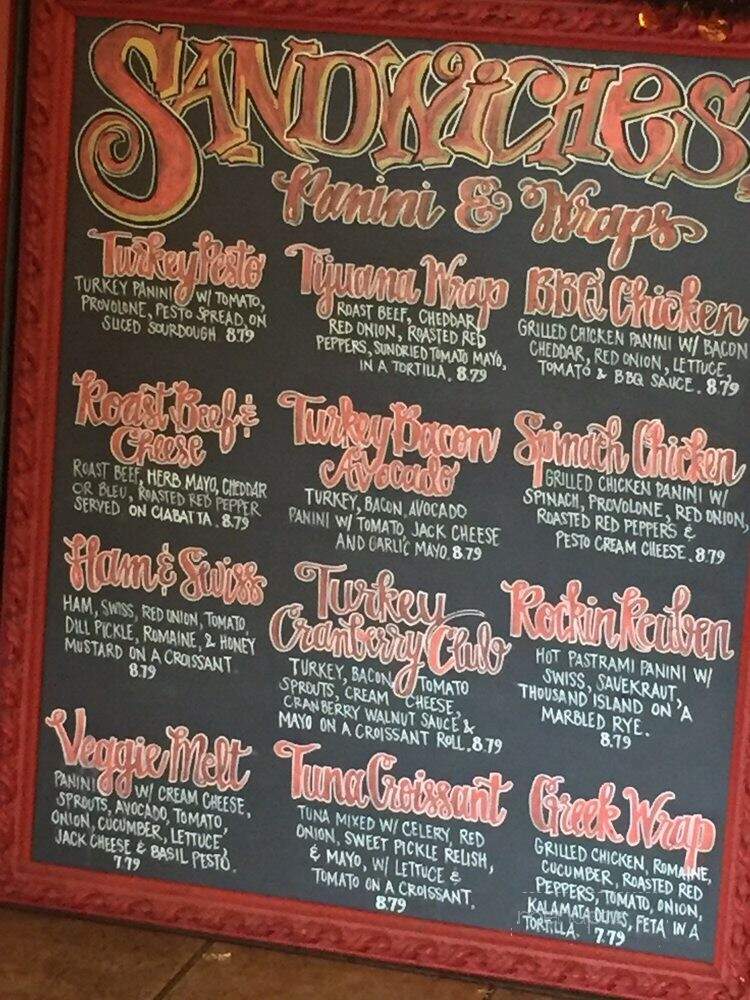 SANDWICHES
Panini & Wraps
Turkey Pesto
TURKEY PANINI W/ TOMATO,
PROVOLONE, PESTO SPREAD ON
SLICED SOURDOUGH 8.79
Roast Beef &
Cheese
ROAST BEEF, HERB MAYO, CHEDDAR
OR BLEU, ROASTED RED PEPPER
SERVED ON CIABATTA. 8.79
Ham & Swiss
HAM, SWISS, RED ONION, TOMATO,
DILL PICKLE, ROMAINE, & HONEY
MUSTARD ON A CROISSANT
8.79
Veggie Melt
PANINI W/ CREAM CHEESE,
SPROUTS, AVOCADO, TOMATO,
ONION, CUCUMBER, LETTUCE,
JACK CHEESE & BASIL PESTO.
7.79
Tijuana Wrap
ROAST BEEF, CHEDDAR,
RED ONION, ROASTED RED
PEPPERS, SUNDRIED TOMATO MAYO,
IN A TORTILLA. 8.79
Turkey Bacon
Avocado
TURKEY, BACON, AVOCADO
PANINI W/ TOMATO, JACK CHEESE
AND GARLIC MAYO. 8.79
Turkey
Cranberry Club
TURKEY, BACON, TOMATO
SPROUTS, CREAM CHEESE,
CRANBERRY WALNUT SAUCE &
MAYO ON A CROISSANT ROLL. 8.79
Tuna Croissant
TUNA MIXED W/ CELERY, RED
ONION, SWEET PICKLE RELISH,
& MAYO, W/ LETTUCE &
TOMATO ON A CROISSANT.
8.79
BBQ Chicken
GRILLED CHICKEN PANINI W/ BACON
CHEDDAR, RED ONION, LETTUCE,
TOMATO & BBQ SAUCE. 8.79
Spinach Chicken
GRILLED CHICKEN PANINI W/
SPINACH, PROVOLONE, RED ONION,
ROASTED RED PEPPERS &
PESTO CREAM CHEESE. 8.79
Rockin Reuben
HOT PASTRAMI PANINI W/
SWISS, SAUEKRAUT,
THOUSAND ISLAND ON A
MARBLED RYE.
8.79
Greek Wrap
GRILLED CHICKEN, ROMAINE,
CUCUMBER, ROASTED RED
PEPPERS, TOMATO, ONION,
KALAMATA OLIVES, FETA IN A
TORTILLA. 7.79